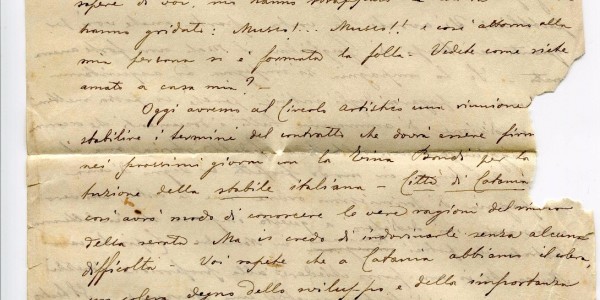 sapere di voi, mi hanno strappato
hanno gridato: Musco!... Musco!! e così attorno alla
mia persona si è formata la folla. Vedete come siete
amato a casa mia? -
Oggi avremo al Circolo Artistico una riunione
stabilire i termini del contratto che dovrà essere firm
nei prossimi giorni con la Bondi per la
tuzione della stabile italiana - Città di Catania
così avrò modo di conoscere le vere ragioni del
della serata. Ma io credo di indovinarle senza alcuna
difficoltà - Voi sapete che a Catania abbiamo il
degno dello sviluppo e della importanza